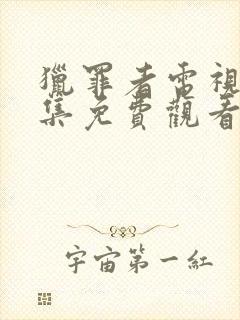 獵罪者電視
集免費觀看
宇宙第一紅